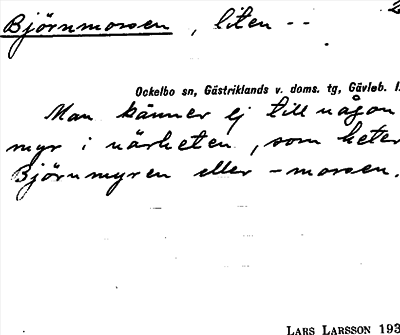 Björnmossen, liten --
2
Ockelbo sn, Gästriklands v. doms. tg, Gävleb. l.
Man känner ej till någon
myr i närheten, som heter
Björnmyren eller -mossen.
LARS LARSSON 193